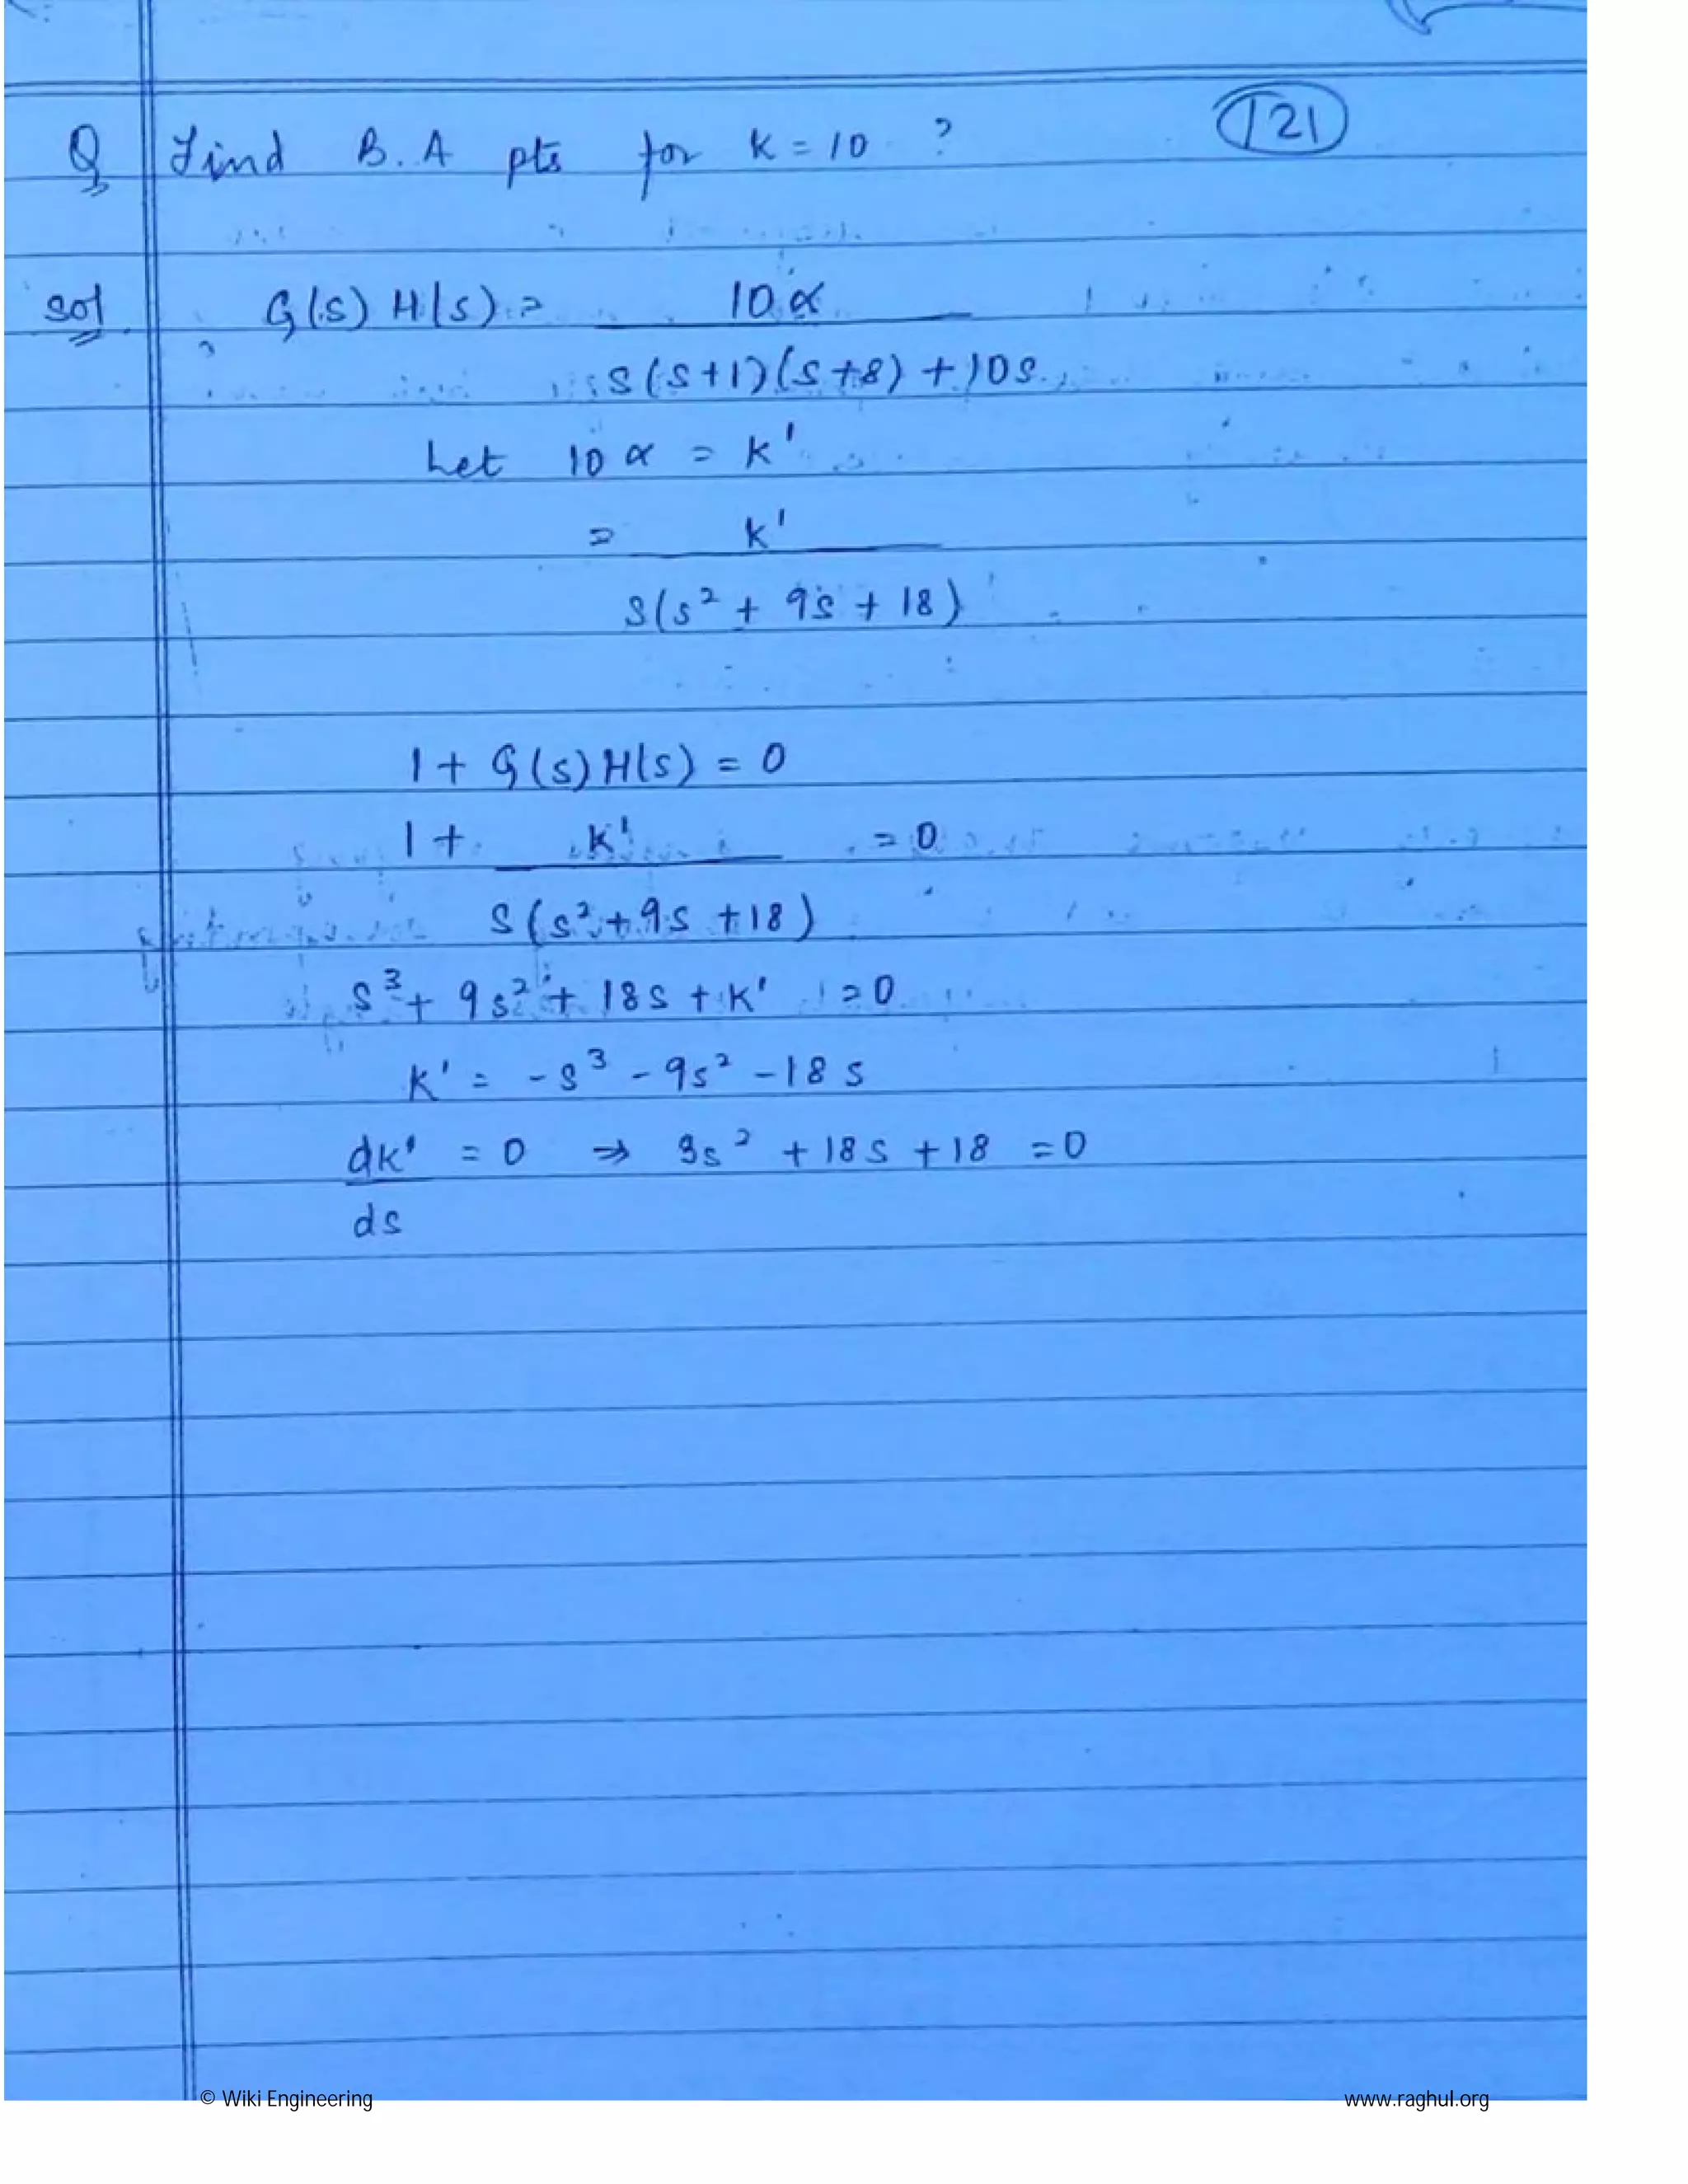 121
Q Find B.A pts for K = 10 ?
Sol G(s) H(s) = 10 α
s(s+1)(s+8) + 10s
Let 10 α = K'
= K'
s(s² + 9s + 18)
1 + G(s) H(s) = 0
1 + K' = 0
s(s² + 9s + 18)
s³ + 9s² + 18s + K' = 0
K' = -s³ - 9s² - 18s
dK' = 0 ⇒ 3s² + 18s + 18 = 0
ds
© Wiki Engineering www.raghul.org